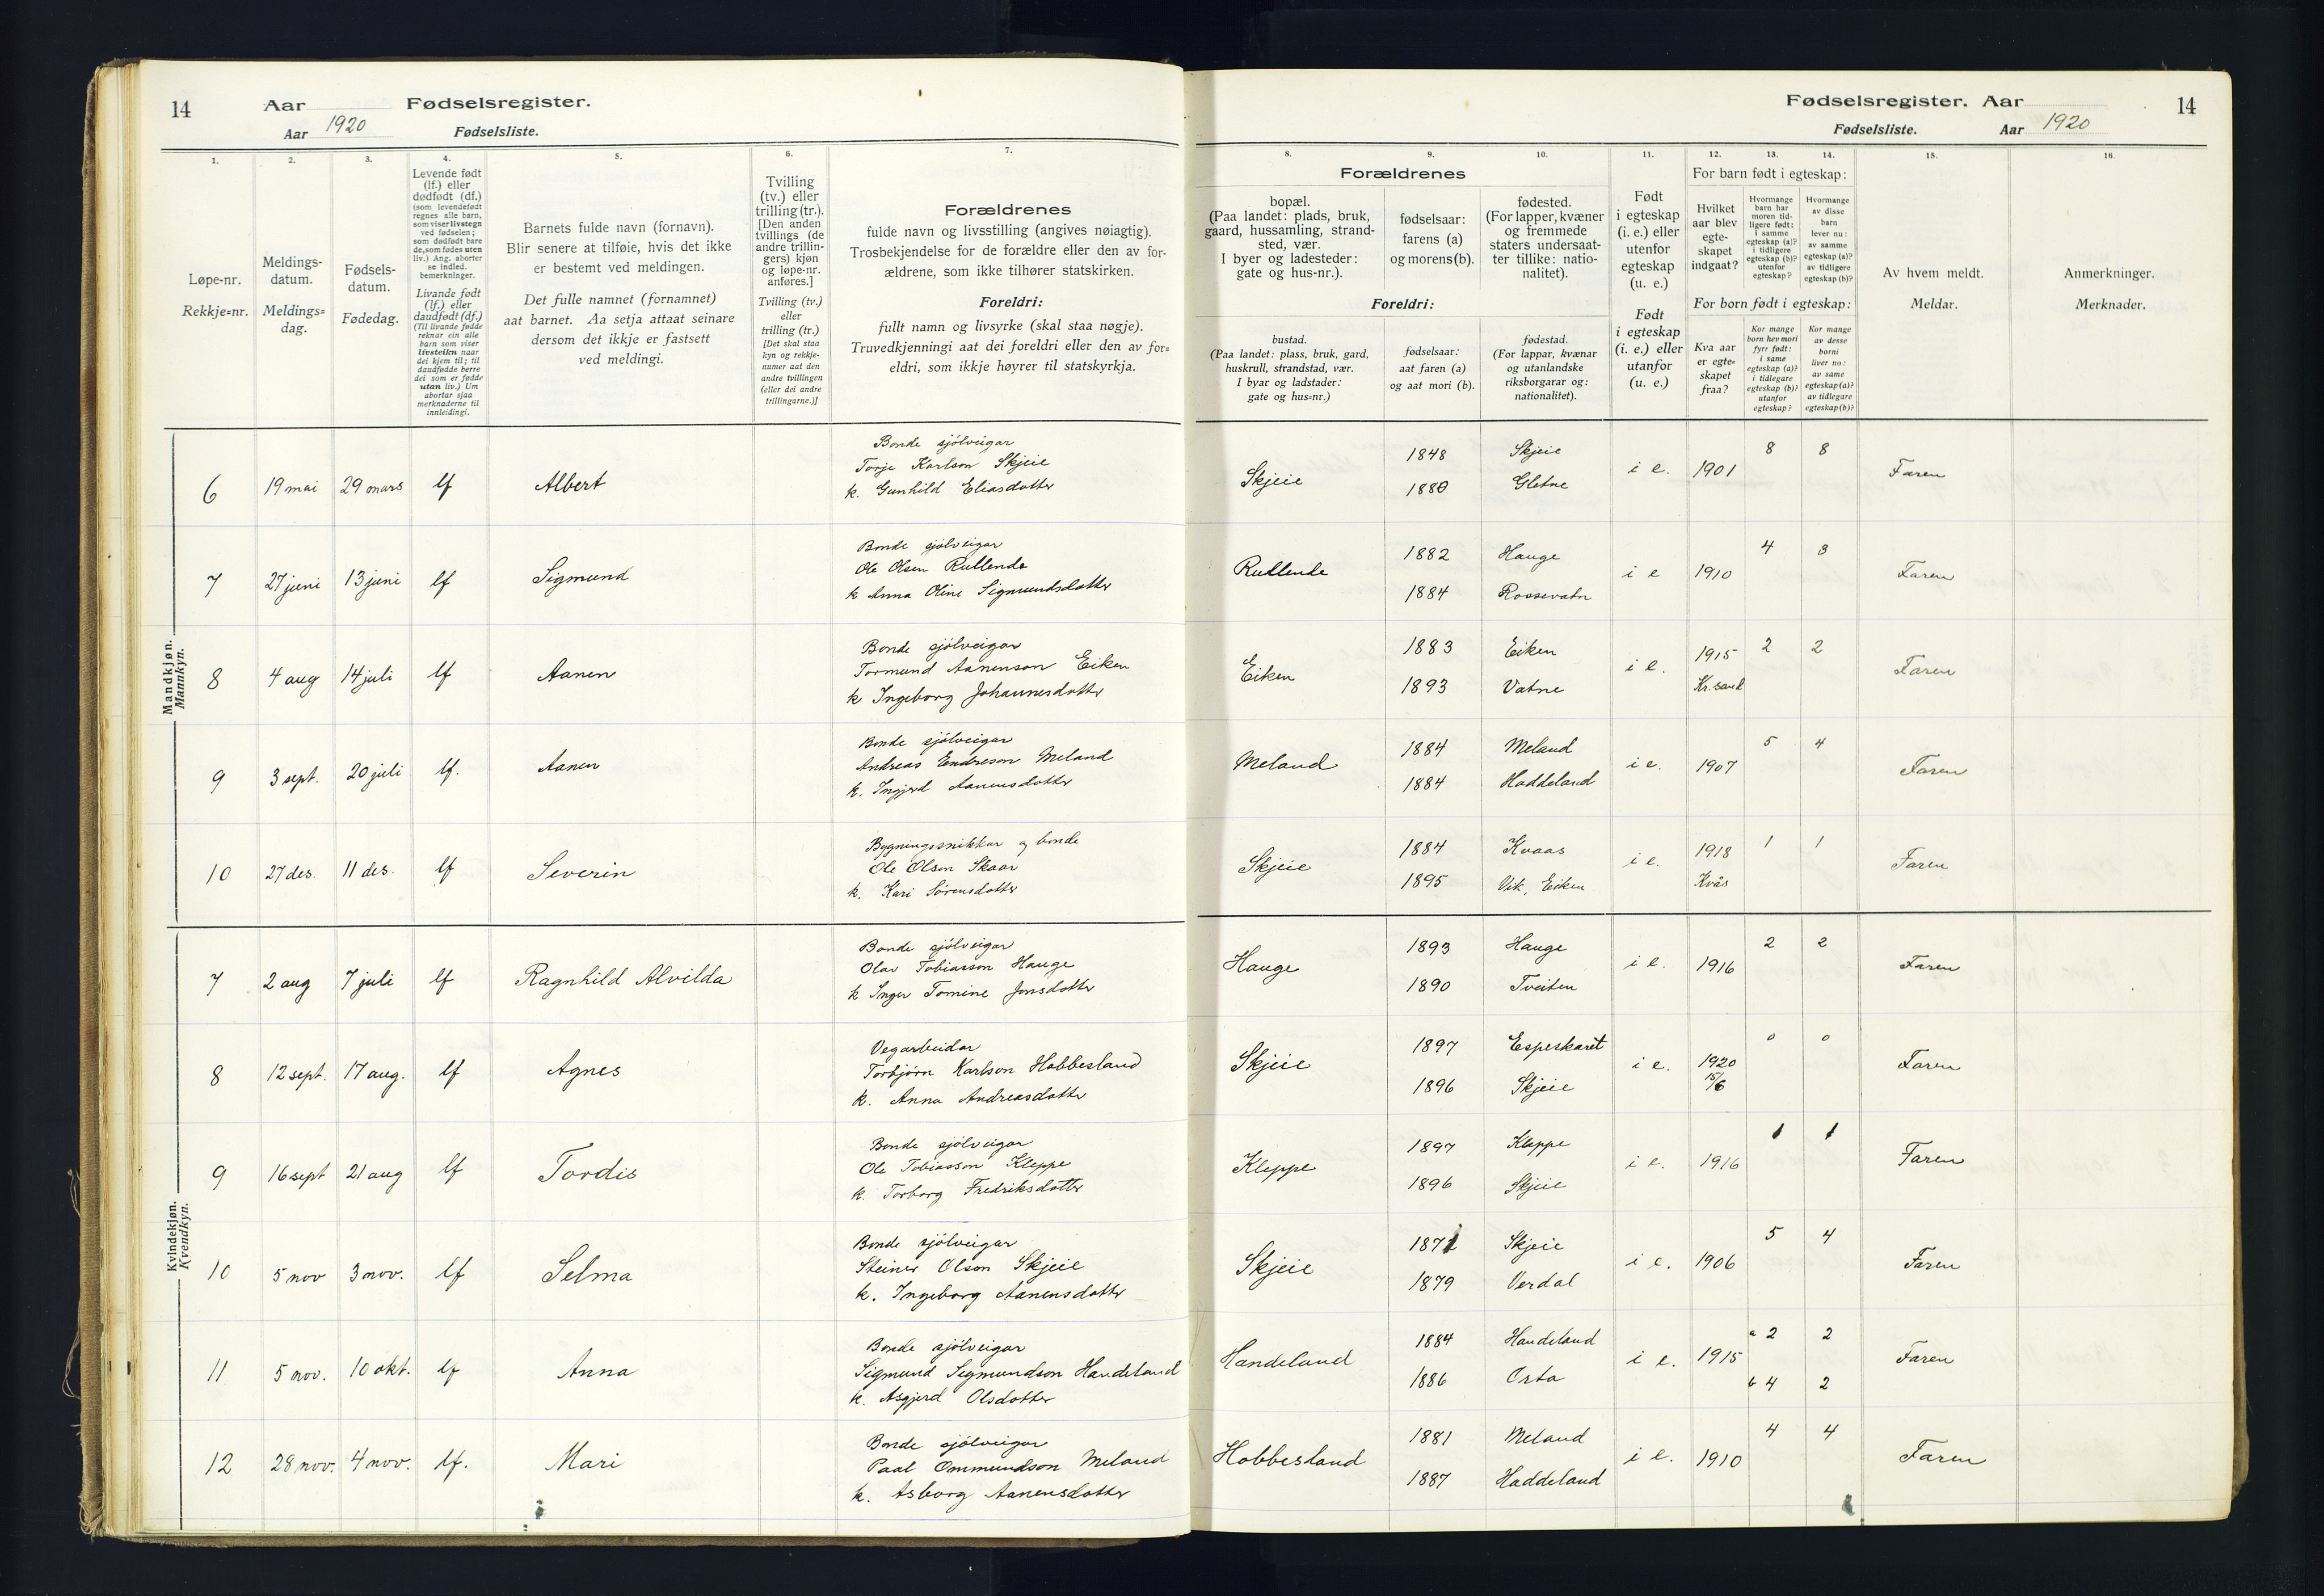 14
Aar
Fødselsregister.
Aar 1920
Fødselsliste.
1.
2.
3.
4.
5.
6.
7.
Løpe-nr.
Rekkje-nr.
Meldings-
datum.
Meldings-
dag.
Fødsels-
datum.
Fødedag.
Levende født
(lf.) eller
dødfødt (df.)
(som levendefødt
regnes alle barn,
som viser livstegn
ved fødselen;
som dødfødt bare
de, som fødes uten
liv.) Ang. aborter
se indled.
bemerkninger.
Livande født
(lf.) eller
daudfødt (df.)
(Til livande fødde
reknar ein alle
barn som viser
livsteikn naar
dei kjem til; til
daudfødde berre
dei som er fødde
utan liv.) Um
abortar sjaa
merknaderne til
innleidingi.
Barnets fulde navn (fornavn).
Blir senere at tilføie, hvis det ikke
er bestemt ved meldingen.
Det fulle namnet (fornamnet)
aat barnet. Aa setja attaat seinare
dersom det ikkje er fastsett
ved meldingi.
Tvilling
(tv.) eller
trilling (tr.).
[Den anden
tvillings (de
andre trillin-
gers) kjøn
og løpe-nr.
anføres.]
Tvilling (tv.)
eller
trilling (tr.)
[Det skal staa
kyn og rekkje-
numer aat den
andre tvillingen
(eller dei andre
trillingarne.)]
Forældrenes
fulde navn og livsstilling (angives nøiagtig).
Trosbekjendelse for de forældre eller den av for-
ældrene, som ikke tilhører statskirken.
Foreldri:
fullt namn og livsyrke (skal staa nøgje).
Truvedkjenningi aat dei foreldri eller den av for-
eldri, som ikkje høyrer til statskyrkja.
Fødselsregister. Aar
14
Fødselsliste.
Aar 1920
8.
9.
10.
11.
12.
13.
14.
15.
16.
Forældrenes
bopæl.
(Paa landet: plads, bruk,
gaard, hussamling, strand-
sted, vær.
I byer og ladesteder:
gate og hus-nr.).
fødselsaar:
farens (a)
og morens (b).
fødested.
(For lapper, kvæner
og fremmede
staters undersaat-
ter tillike: natio-
nalitet).
Foreldri:
bustad.
(Paa landet: plass, bruk, gard,
huskrull, strandstad, vær.
I byar og ladstader:
gate og hus-nr.)
fødselsaar:
aat faren (a)
og aat mori (b).
fødestad.
(For lappar, kvænar
og utanlandske
riksborgarar og:
nationalitet).
Født
i egteskap
(i. e.) eller
utenfor
egteskap
(u. e.)
Født
i egteskap
(i. e.) eller
utanfor
(u. e.)
For barn født i egteskap:
Hvilket
aar blev
egte-
skapet
indgaat?
Hvormange
barn har
moren tid-
ligere født:
i samme
egteskap (a)?
i tidligere
egteskap (b)?
utenfor
egteskap?
Hvormange
av disse
barn
lever nu:
av samme
egteskap (a)?
av tidligere
egteskap (b)?
For born født i egteskap:
Kva aar
er egte-
skapet
fraa?
Kor mange
born hev mori
fyrr født:
i same
egteskap (a)?
i tidlegare
egteskap (b)?
utanfor
egteskap?
Kor mange
av desse
borni
liver no:
av same
egteskap (a)?
av tidlegare
egteskap (b)?
Av hvem meldt.
Meldar.
Anmerkninger.
Merknader.
Mandkjøn.
Mannkyn.
Bonde sjölveigar
6 19 mai 29 mars lf Albert Torje Karlson Skjeie
k. Gunhild Eliasdotter
Skjeie 1848 Skjeie i e. 1901 8 8 Faren
1880 Gletne
Bonde sjölveigar
7 27 juni 13 juni lf Sigmund Ole Olsen Rullende
k Anna Oline Sigmundsdotter
Rullende 1882 Hauge i e 1910 4 3 Faren
1884 Rossevatn
Bonde sjölveigar
8 4 aug 14 juli lf Aanen Tormund Aanenson Eiken
k Ingeborg Johannesdotter
Eiken 1883 Eiken i e. 1915 2 2 Faren
1893 Vatne Kr.sand
Bonde sjölveigar
9 3 sept. 20 juli lf. Aanen Andreas Endreson Meland
k. Ingjerd Aanensdotter
Meland 1884 Meland i e. 1907 5 4 Faren
1884 Haddeland
Bygningssnikkar og bonde
10 27 des. 11 des. lf Severin Ole Olson Skaar
k. Kari Sörensdotter
Skjeie 1884 Kvaas i e. 1918 1 1 Faren
1895 Vik, Eiken Kvås
Kvindekjøn.
Kvendkyn.
Bonde sjölveigar
7 2 aug 7 juli lf Ragnhild Alvilda Olav Tobiasson Hauge
k Inger Tomine Jonsdotter
Hauge 1893 Hauge i e. 1916 2 2 Faren
1890 Tveiten
Vegarbeidar
8 12 sept. 17 aug. lf Agnes Torbjörn Karlson Hobbesland
k. Anna Andreasdotter
Skjeie 1897 Espeskaret i e. 1920 0 0 Faren
1896 Skjeie 15/6
Bonde sjölveigar
9 16 sept 21 aug lf Tordis Ole Tobiasson Kleppe
k. Torborg Fredriksdotter
Kleppe 1897 Kleppe i e. 1916 1 1 Faren
1896 Skjeie
Bonde sjölveigar
10 5 nov 3 nov. lf Selma Steinar Olson Skjeie
k. Ingeborg Aanensdotter
Skjeie 1871 Skjeie i e. 1906 5 4 Faren
1879 Verdal
Bonde sjölveigar
11 5 nov. 10 okt. lf Anna Sigmund Sigmundson Handeland
k. Asgjerd Olsdotter
Handeland 1884 Handeland i e. 1915 a 2 2 Faren
1886 Orta b 4 2
Bonde sjölveigar
12 28 nov. 4 nov. lf. Mari Paal Ommundson Meland
k. Asborg Aanensdotter
Hobbesland 1881 Meland i e. 1910 4 4 Faren
1887 Haddeland